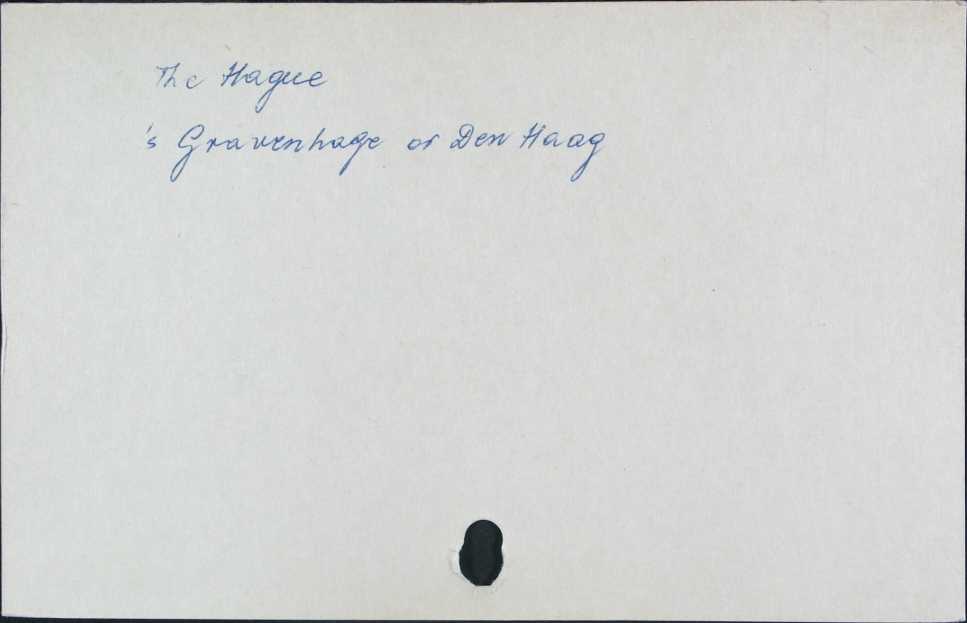 The Hague
's Gravenhage or Den Haag